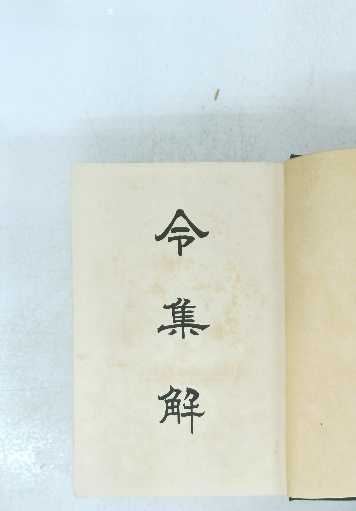 令集解